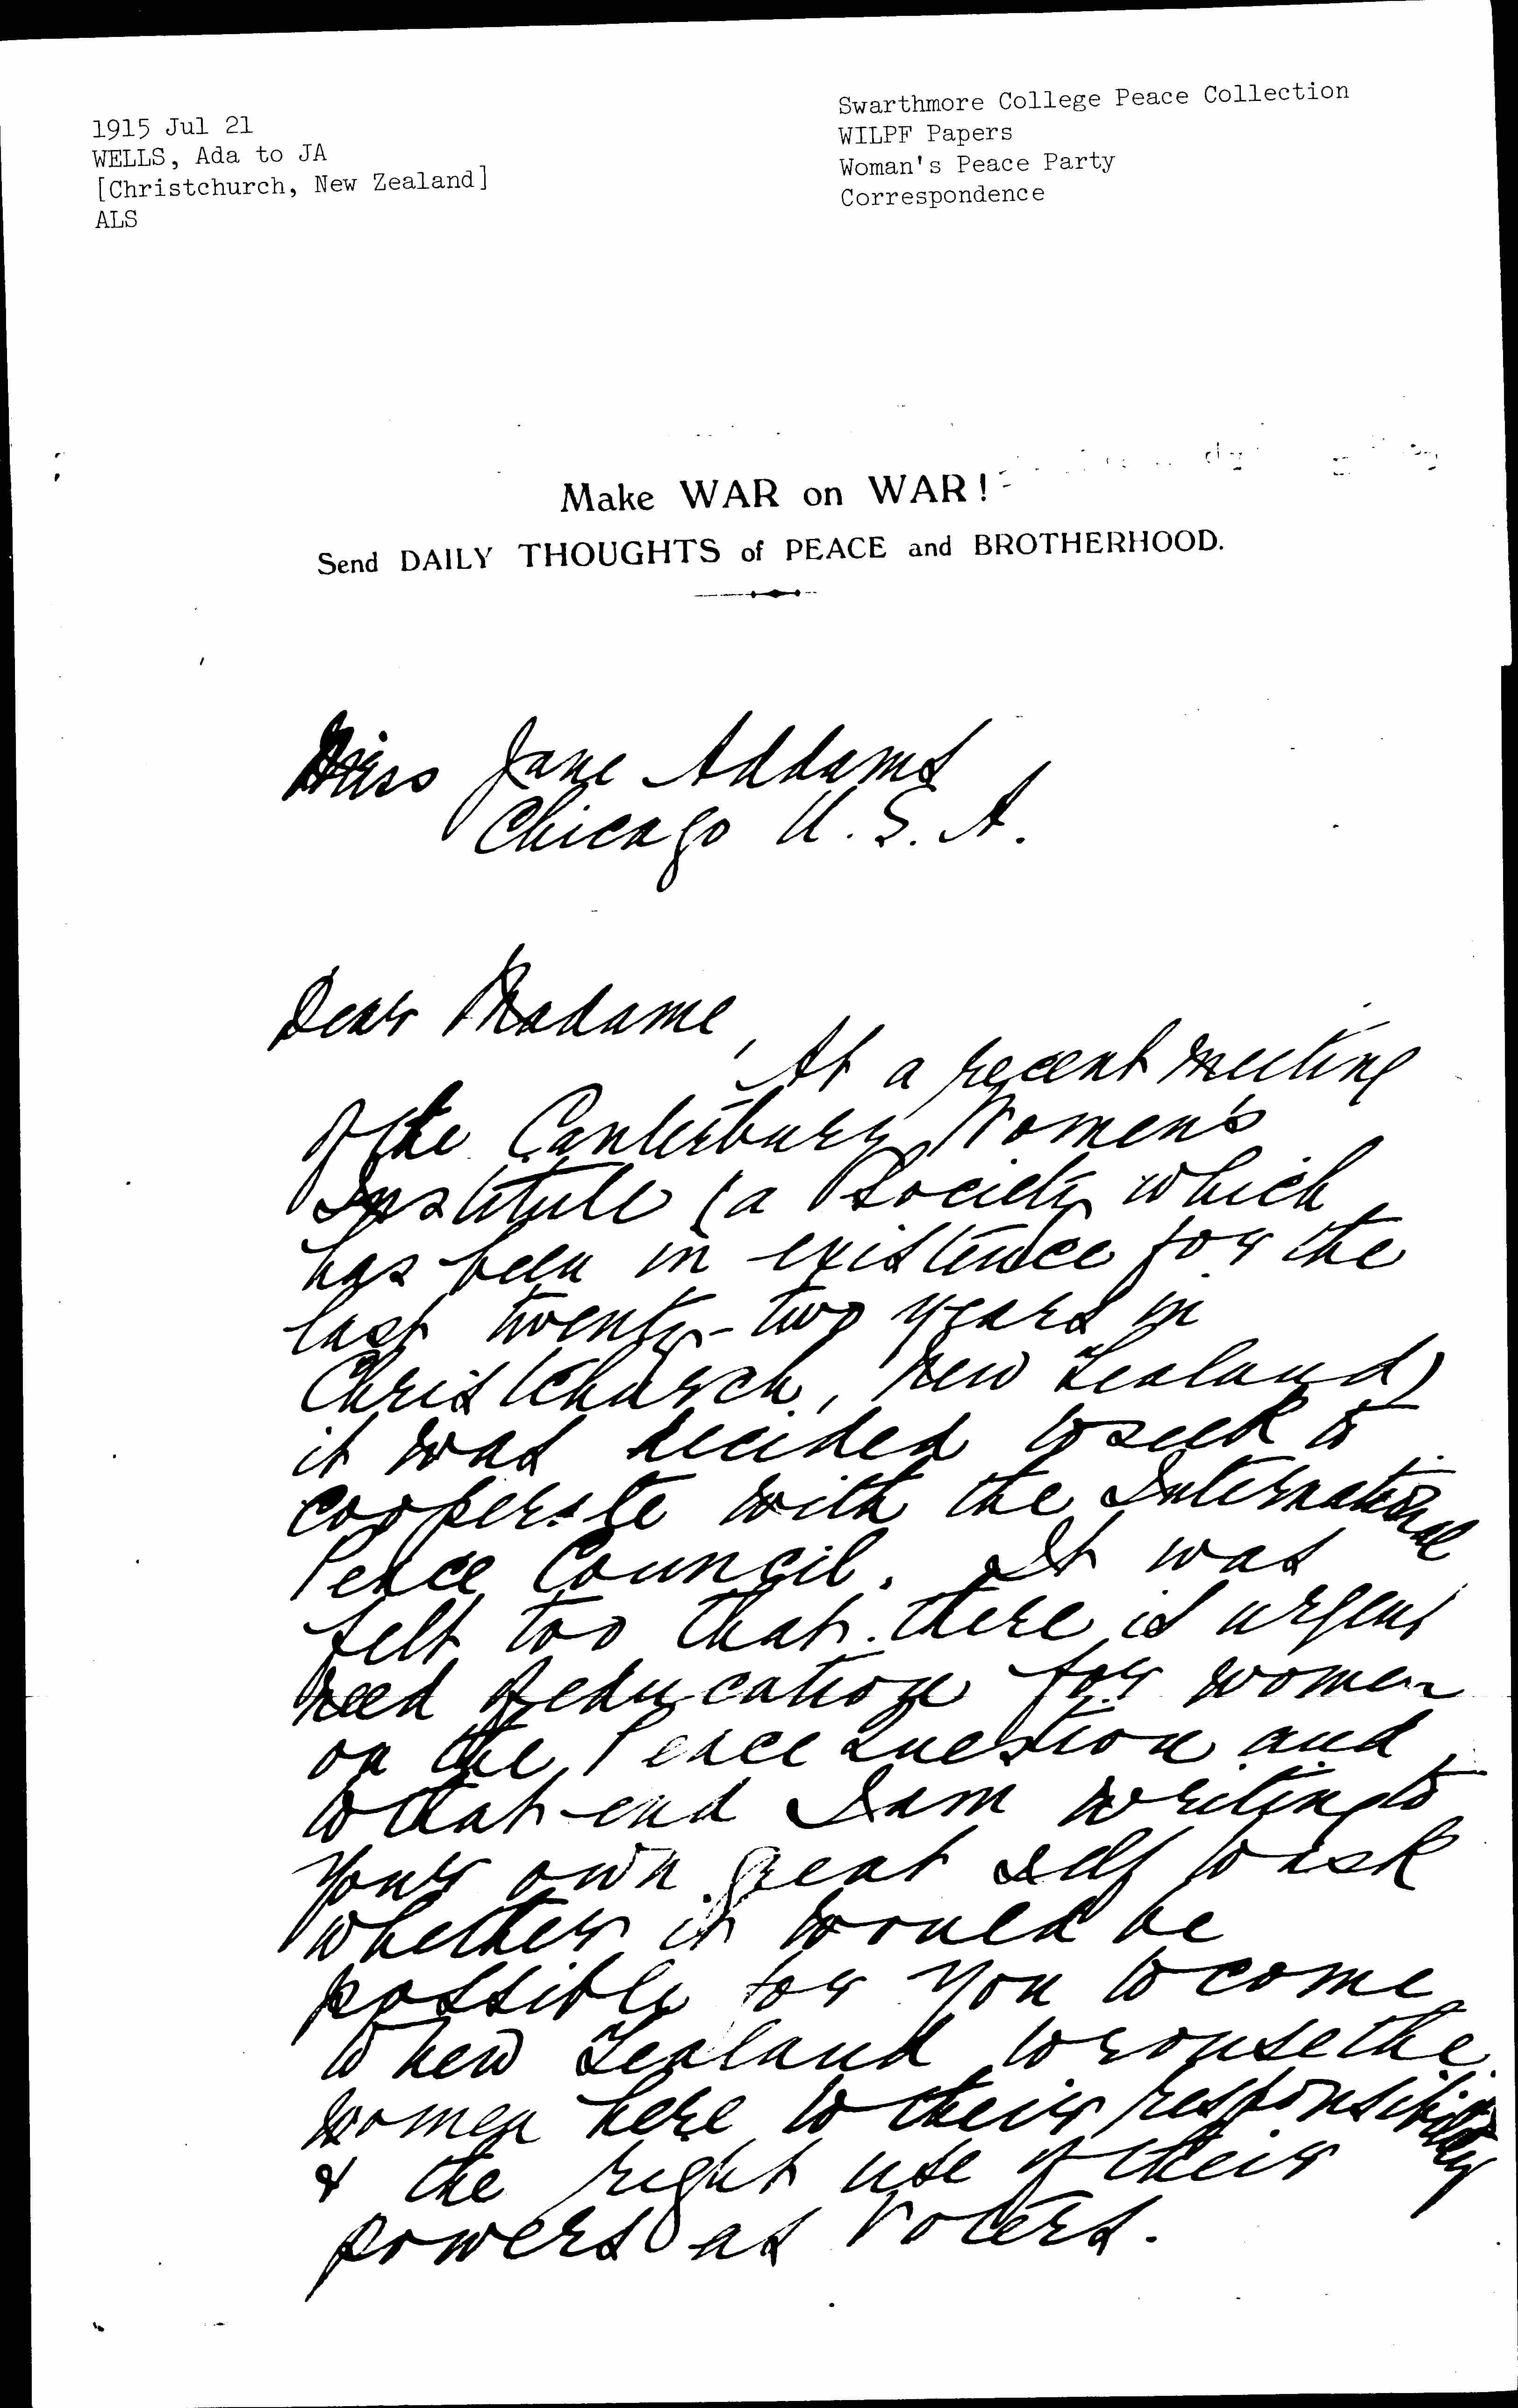 1915 Jul 21
WELLS, Ada to JA
[Christchurch, New Zealand]
ALS
Swarthmore College Peace Collection
WILPF Papers
Woman's Peace Party
Correspondence
Make WAR on WAR!
Send DAILY THOUGHTS of PEACE and BROTHERHOOD.
Miss Jane Addams
Chicago U.S.A.
Dear Madame,
At a recent meeting
of the Canterbury Women's
Institute (a Society which
has been in existence for the
last twenty-two years in
Christchurch, New Zealand)
it was decided to seek to
cooperate with the International
Peace Council. It was
felt too that there is urgent
need of education for women
on the Peace Question and
to that end I am writing to
your own great self to ask
whether it would be
possible for you to come
to New Zealand to rouse the
women here to their responsibility
& the right use of their
powers as Voters.